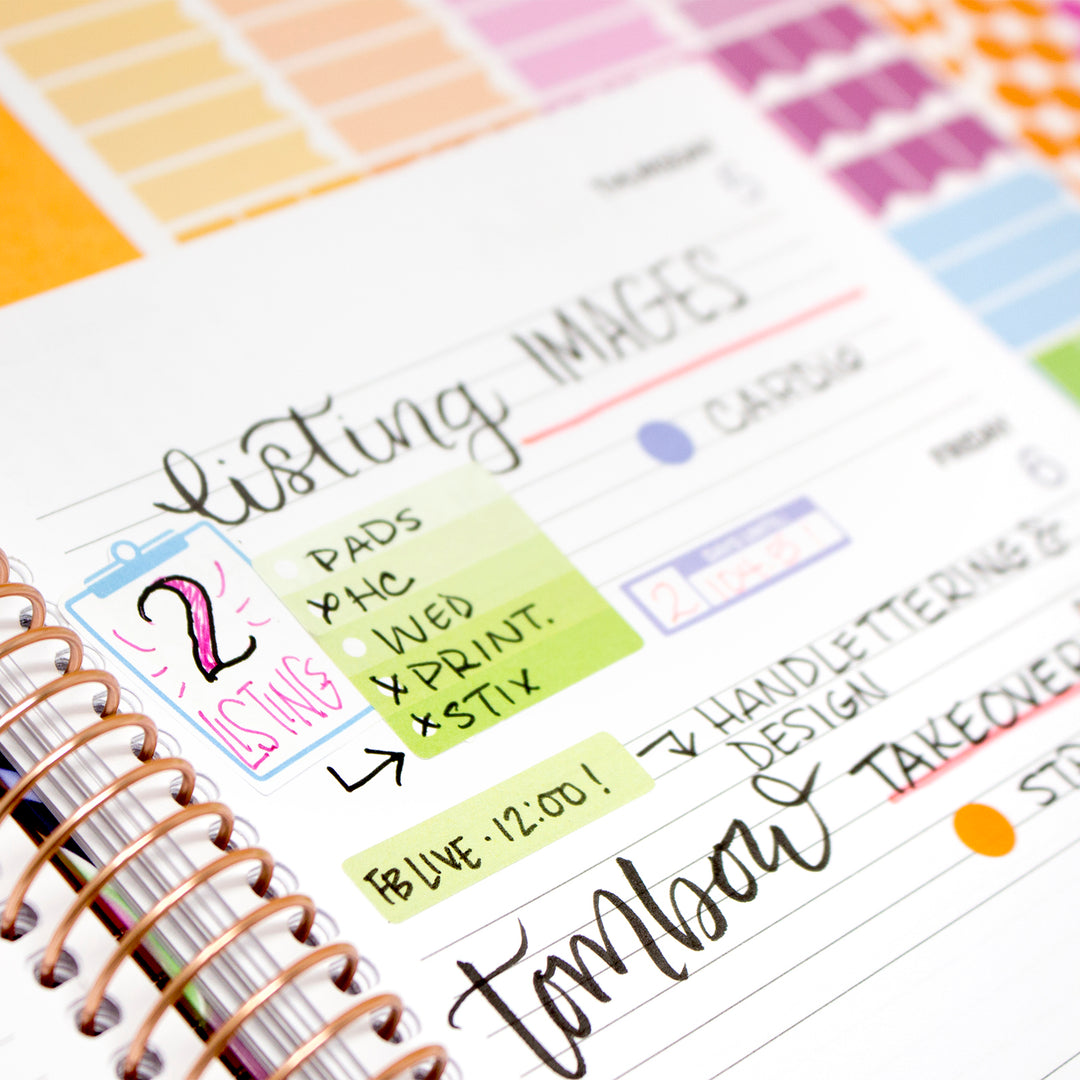 THURSDAY
5
listing IMAGES
CARDIO
2
LISTING
PADS
x HC
WED
x PRINT.
x STIX
FRIDAY
6
2
HANDLETTERING &
DESIGN
FB LIVE · 12:00!
TAKEOVER
tombow